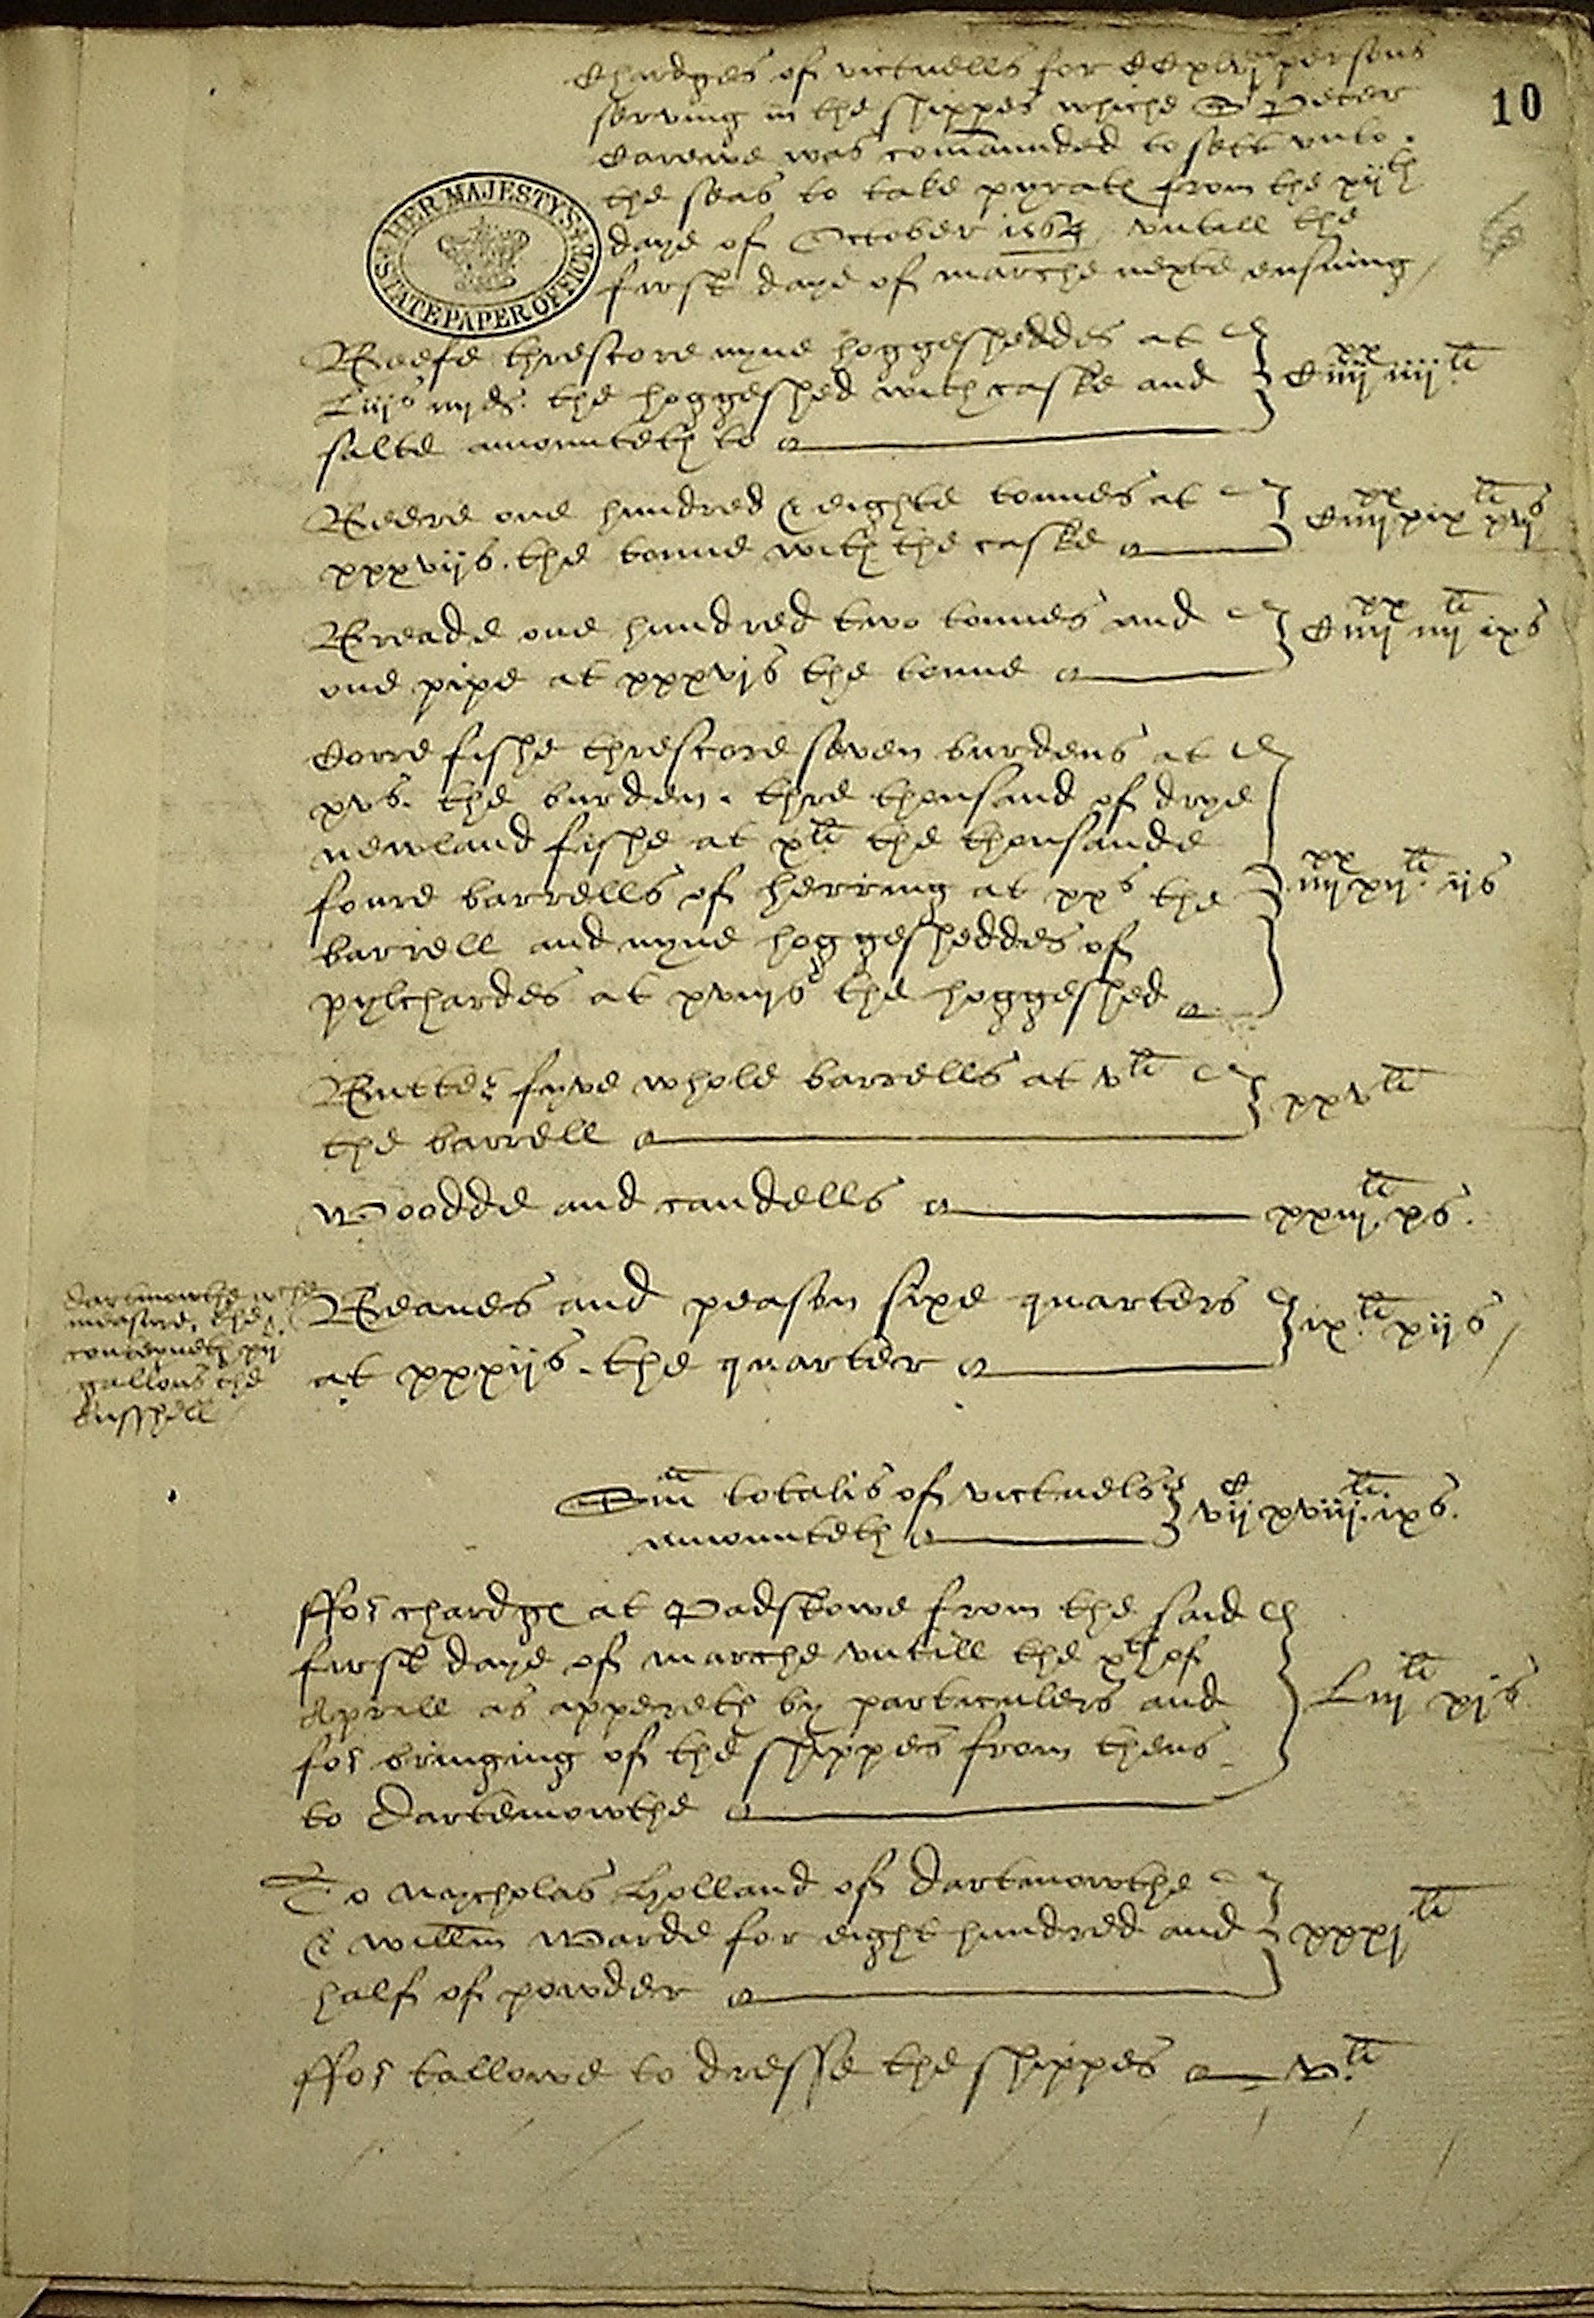 10
Chardges of victuells for CCxlvj persons
serving in the shippes whiche Sr Peter
Carewe was comaunded to sett unto
the seas to take pyrats from the xijth
daye of October 1564 untill the
first daye of marche nexte ensuing
HER MAJESTY'S STATE PAPER OFFICE
Beefe threscore nyne hoggesheddes at
Liijs iiijd. the hoggeshed with caske and
salte amounteth to
Ciiijxx iiijli
Beere one hundred & eighte tonnes at
xxxvijs. the tonne with the caske
Ciiijxx xixli xvjs
Breade one hundred two tonnes and
one pipe at xxxvjs the tonne
Ciiijxx iiijli ixs
Corre fishe threscore seven burdens at
xvs. the burden. thre thousand of drye
newland fishe at xli the thousande
foure barrells of herring at xxs the
barrell and nyne hoggesheddes of
pylchardes at xviijs the hoggeshed
iiijxx xijli ijs
Butter fyve whole barrells at vli
the barrell
xxvli
Woodde and candells
xxiijli xs.
dartmowthe
measure, the
conteyneth xij
gallons the
busshell
Beanes and peason sixe quarters
at xxxijs. the quarter
ixli xijs
Sma totalis of victuels
amounteth
vijC xviijli ixs.
ffor chardges at Padstowe from the said
first daye of marche untill the xth of
Aprill as appereth by particulers and
for bringing of the shippes from thens
to Dartemowthe
Liijli xjs
To Nycholas Holland of Dartmowthe
& Willm Warde for eight hundred and
half of powder
xxxjli
ffor tallowe to dresse the shippes
vli